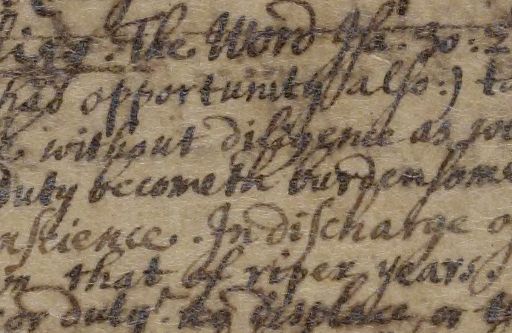 The Word Isa. 30: 2
had opportunity also:) to
without diligence as yo
duty becometh burdensome
nscience. In discharge o
that of riper years,
or duty